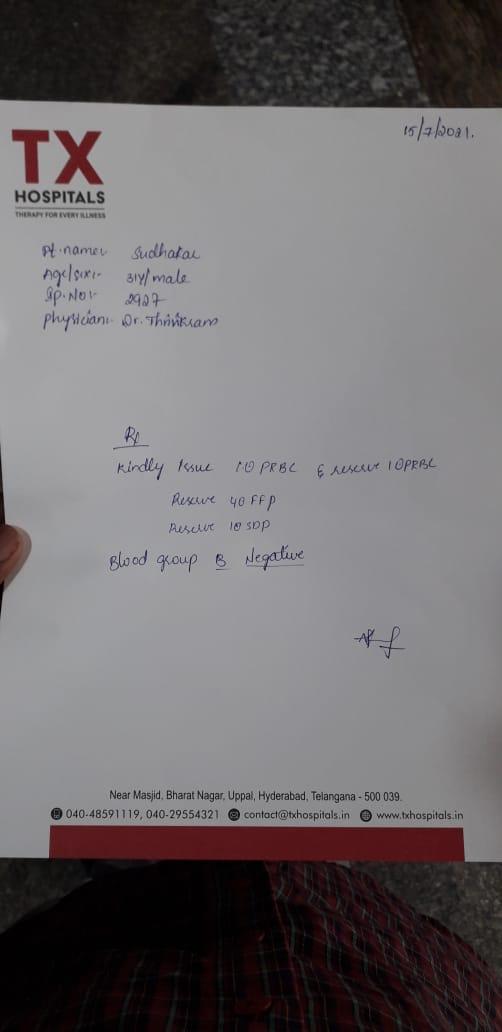 15/7/2021.
TX
HOSPITALS
THERAPY FOR EVERY ILLNESS
Pt. name:- Sudhakar
Age/sex:- 31Y/male
Ip. No:- 2927
Physician:- Dr. Thrivikram
Rx
Kindly Issue 1Ⓤ PRBC & reserve 1ⓊPRBC
Reserve 4Ⓤ FFP
Reserve 1Ⓤ SDP
Blood group B Negative
Near Masjid, Bharat Nagar, Uppal, Hyderabad, Telangana - 500 039.
040-48591119, 040-29554321 contact@txhospitals.in www.txhospitals.in